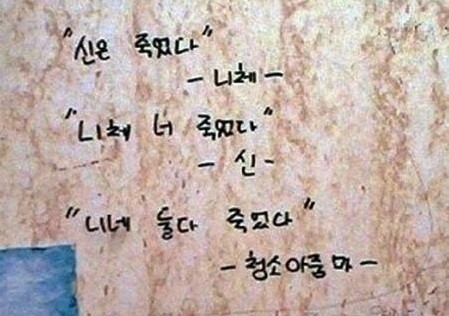 "신은 죽었다"
- 니체 -
"니체 너 죽었다"
- 신 -
"니네 둘다 죽었다"
- 청소아줌마 -